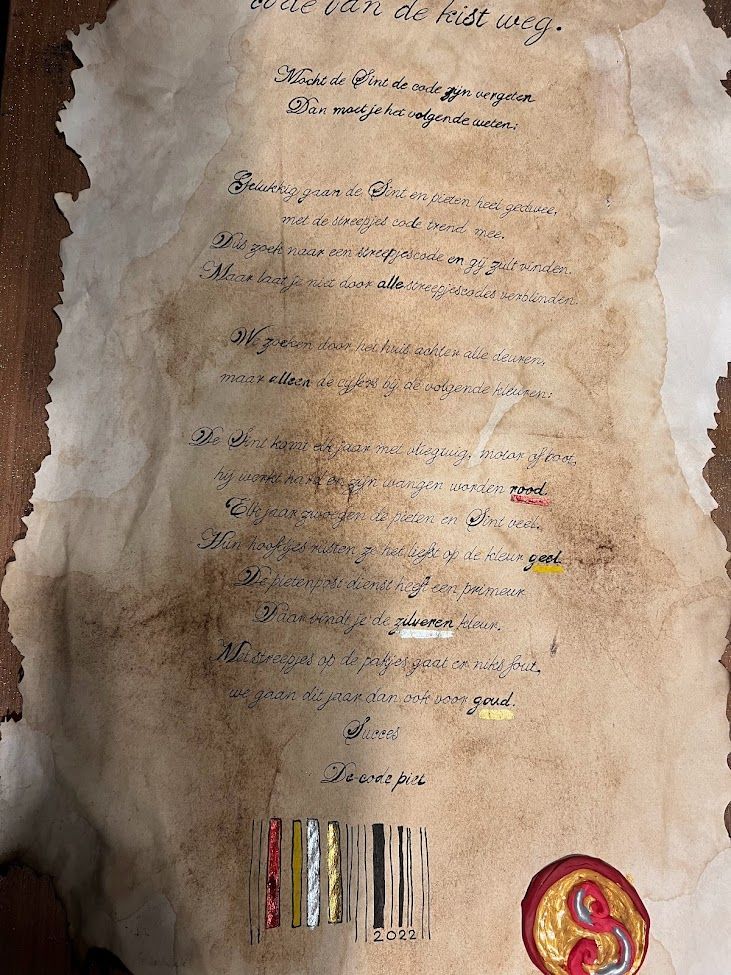 code van de kist weg.
Mocht de Sint de code zijn vergeten
Dan moet je het volgende weten:
Gelukkig gaan de Sint en pieten heel gedwee,
met de streepjes code trend mee.
Dus zoek naar een streepjescode en gij zult vinden.
Maar laat je niet door alle streepjescodes verblinden.
We zoeken door het huis achter alle deuren,
maar alleen de cijfers bij de volgende kleuren:
De Sint komt elk jaar met vliegtuig, motor of boot,
hij werkt hard en zijn wangen worden rood.
Elk jaar zwoegen de pieten en Sint veel.
Hun hoofdjes rusten ze het liefst op de kleur geel.
De pietenpost dienst heeft een primeur
Daar vindt je de zilveren kleur.
Met streepjes op de pakjes gaat er niks fout,
we gaan dit jaar dan ook voor goud.
Succes
De code piet
2022
S